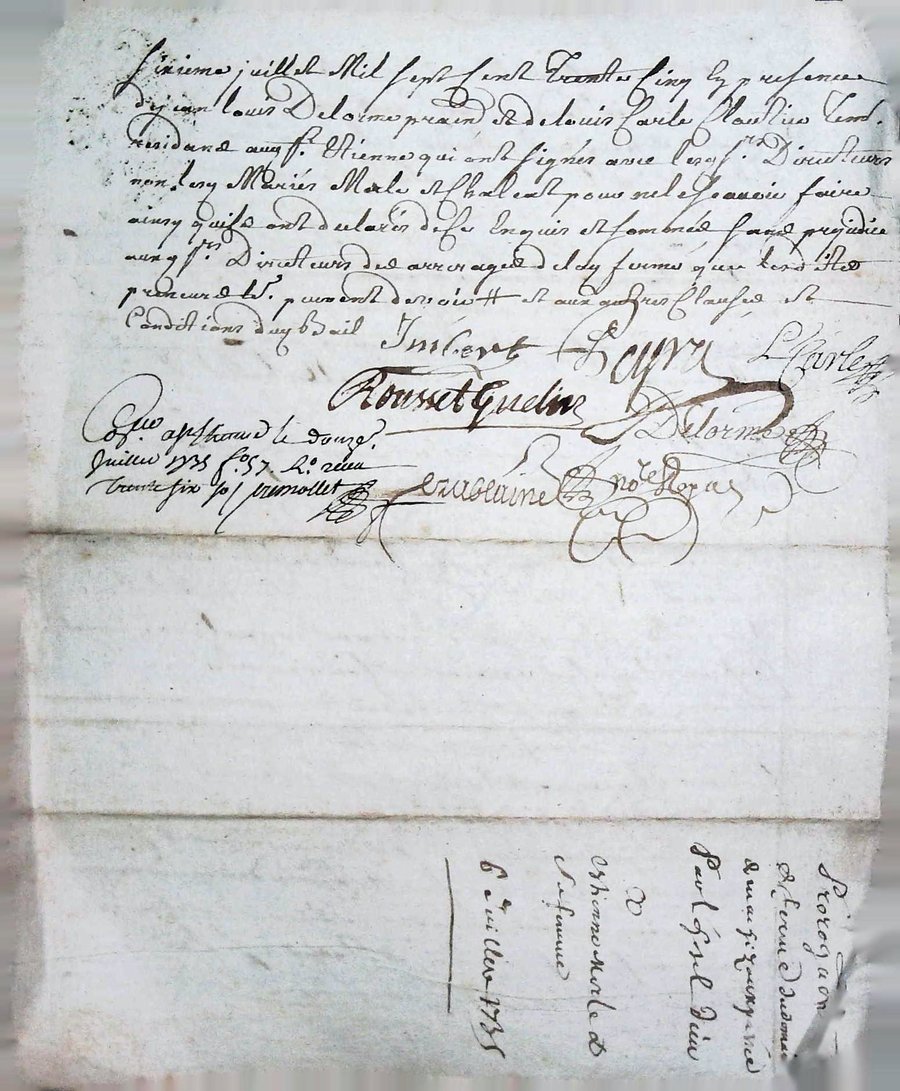 sixieme juillet Mil sept Cent Trente Cinq En presence
de jean louis Delorme prat et de louis Carle
residans aud St. Etienne qui ont signés avec lesd srs Directeurs
non lesd Mariés Merle et Chaleat pour ne le scavoir faire
ainsy quils ont declarés de ce Enquis et sommés sans prejudice
auxd srs Directeurs des arrerages de lad ferme que lesd
preneurs leur peuvent devoir et aux autres Clauses et
Conditions dud bail
Imbert Payra L Carle
Rousset Guedin
Delorme
le douze
Juillet 1735 fo 57 Ro recu
trente six s
nore
Prorogaon
de ferme du domaine

Par lhtel dieu
A
Estienne Merle &
sa femme
6e Juillet 1735